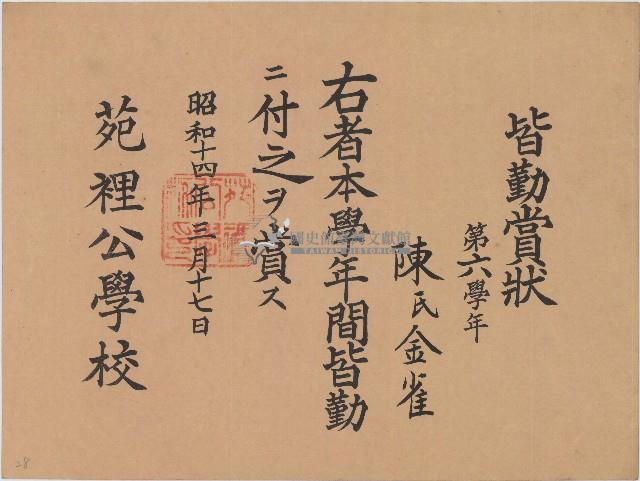 皆勤賞狀
第六學年
陳氏金雀
右者本學年間皆勤
ニ付之ヲ賞ス
昭和十四年三月十七日
苑裡公學校
國史館臺灣文獻館
TAIWAN HISTORICA
28